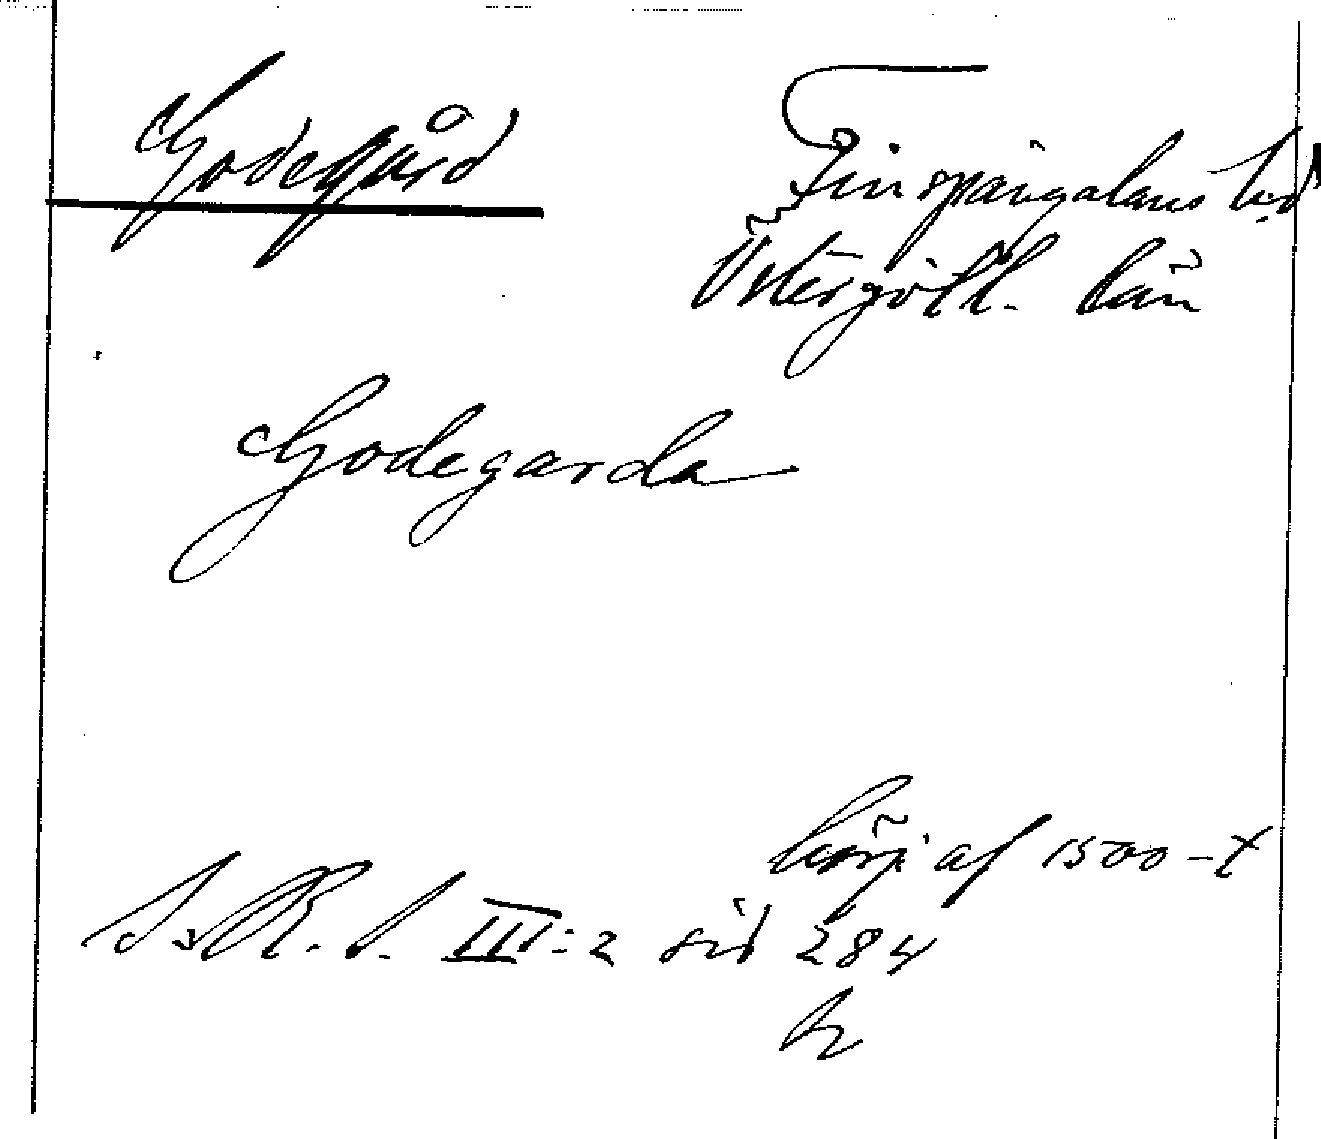 Godegård
Finspångaläns hd
Östergötl. län
Godegarda
börj. af 1500-t
S. R. S. III:2 sid 284